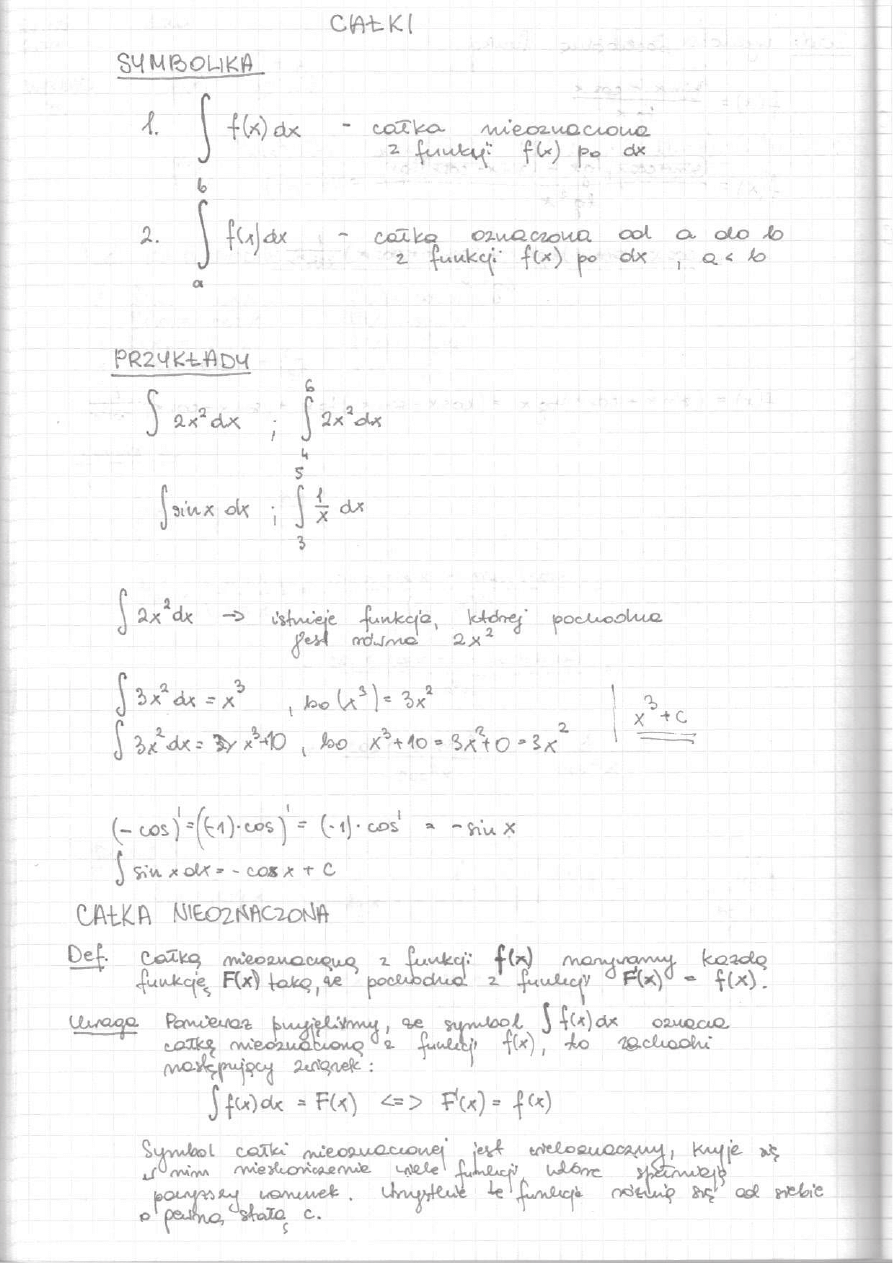 CAŁKI
SYMBOLIKA
1. ∫ f(x) dx - całka nieoznaczona
z funkcji f(x) po dx
2. ∫ₐᵇ f(x) dx - całka oznaczona od a do b
z funkcji f(x) po dx , a < b
PRZYKŁADY
∫ 2x² dx ; ∫₄⁶ 2x² dx
∫ sin x dx ; ∫₃⁵ 1/x dx
∫ 2x² dx → istnieje funkcja, której pochodna
jest równa 2x²
∫ 3x² dx = x³ , bo (x³) = 3x²
∫ 3x² dx = x³+10 , bo x³+10 = 3x²+0 = 3x² | x³+c
(-cos)' = ((-1)·cos)' = (-1)·cos' = -sin x
∫ sin x dx = -cos x + C
CAŁKA NIEOZNACZONA
Def. Całką nieoznaczoną z funkcji f(x) nazywamy każdą
funkcję F(x) taką, że pochodna z funkcji F'(x) = f(x).
Uwaga Ponieważ przyjęliśmy, że symbol ∫ f(x) dx oznacza
całkę nieoznaczoną z funkcji f(x), to zachodzi
następujący związek:
∫ f(x) dx = F(x) <=> F'(x) = f(x)
Symbol całki nieoznaczonej jest wieloznaczny, kryje się
w nim nieskończenie wiele funkcji które spełniają
powyższy warunek. Wszystkie te funkcje różnią się od siebie
o pewną stałą c.